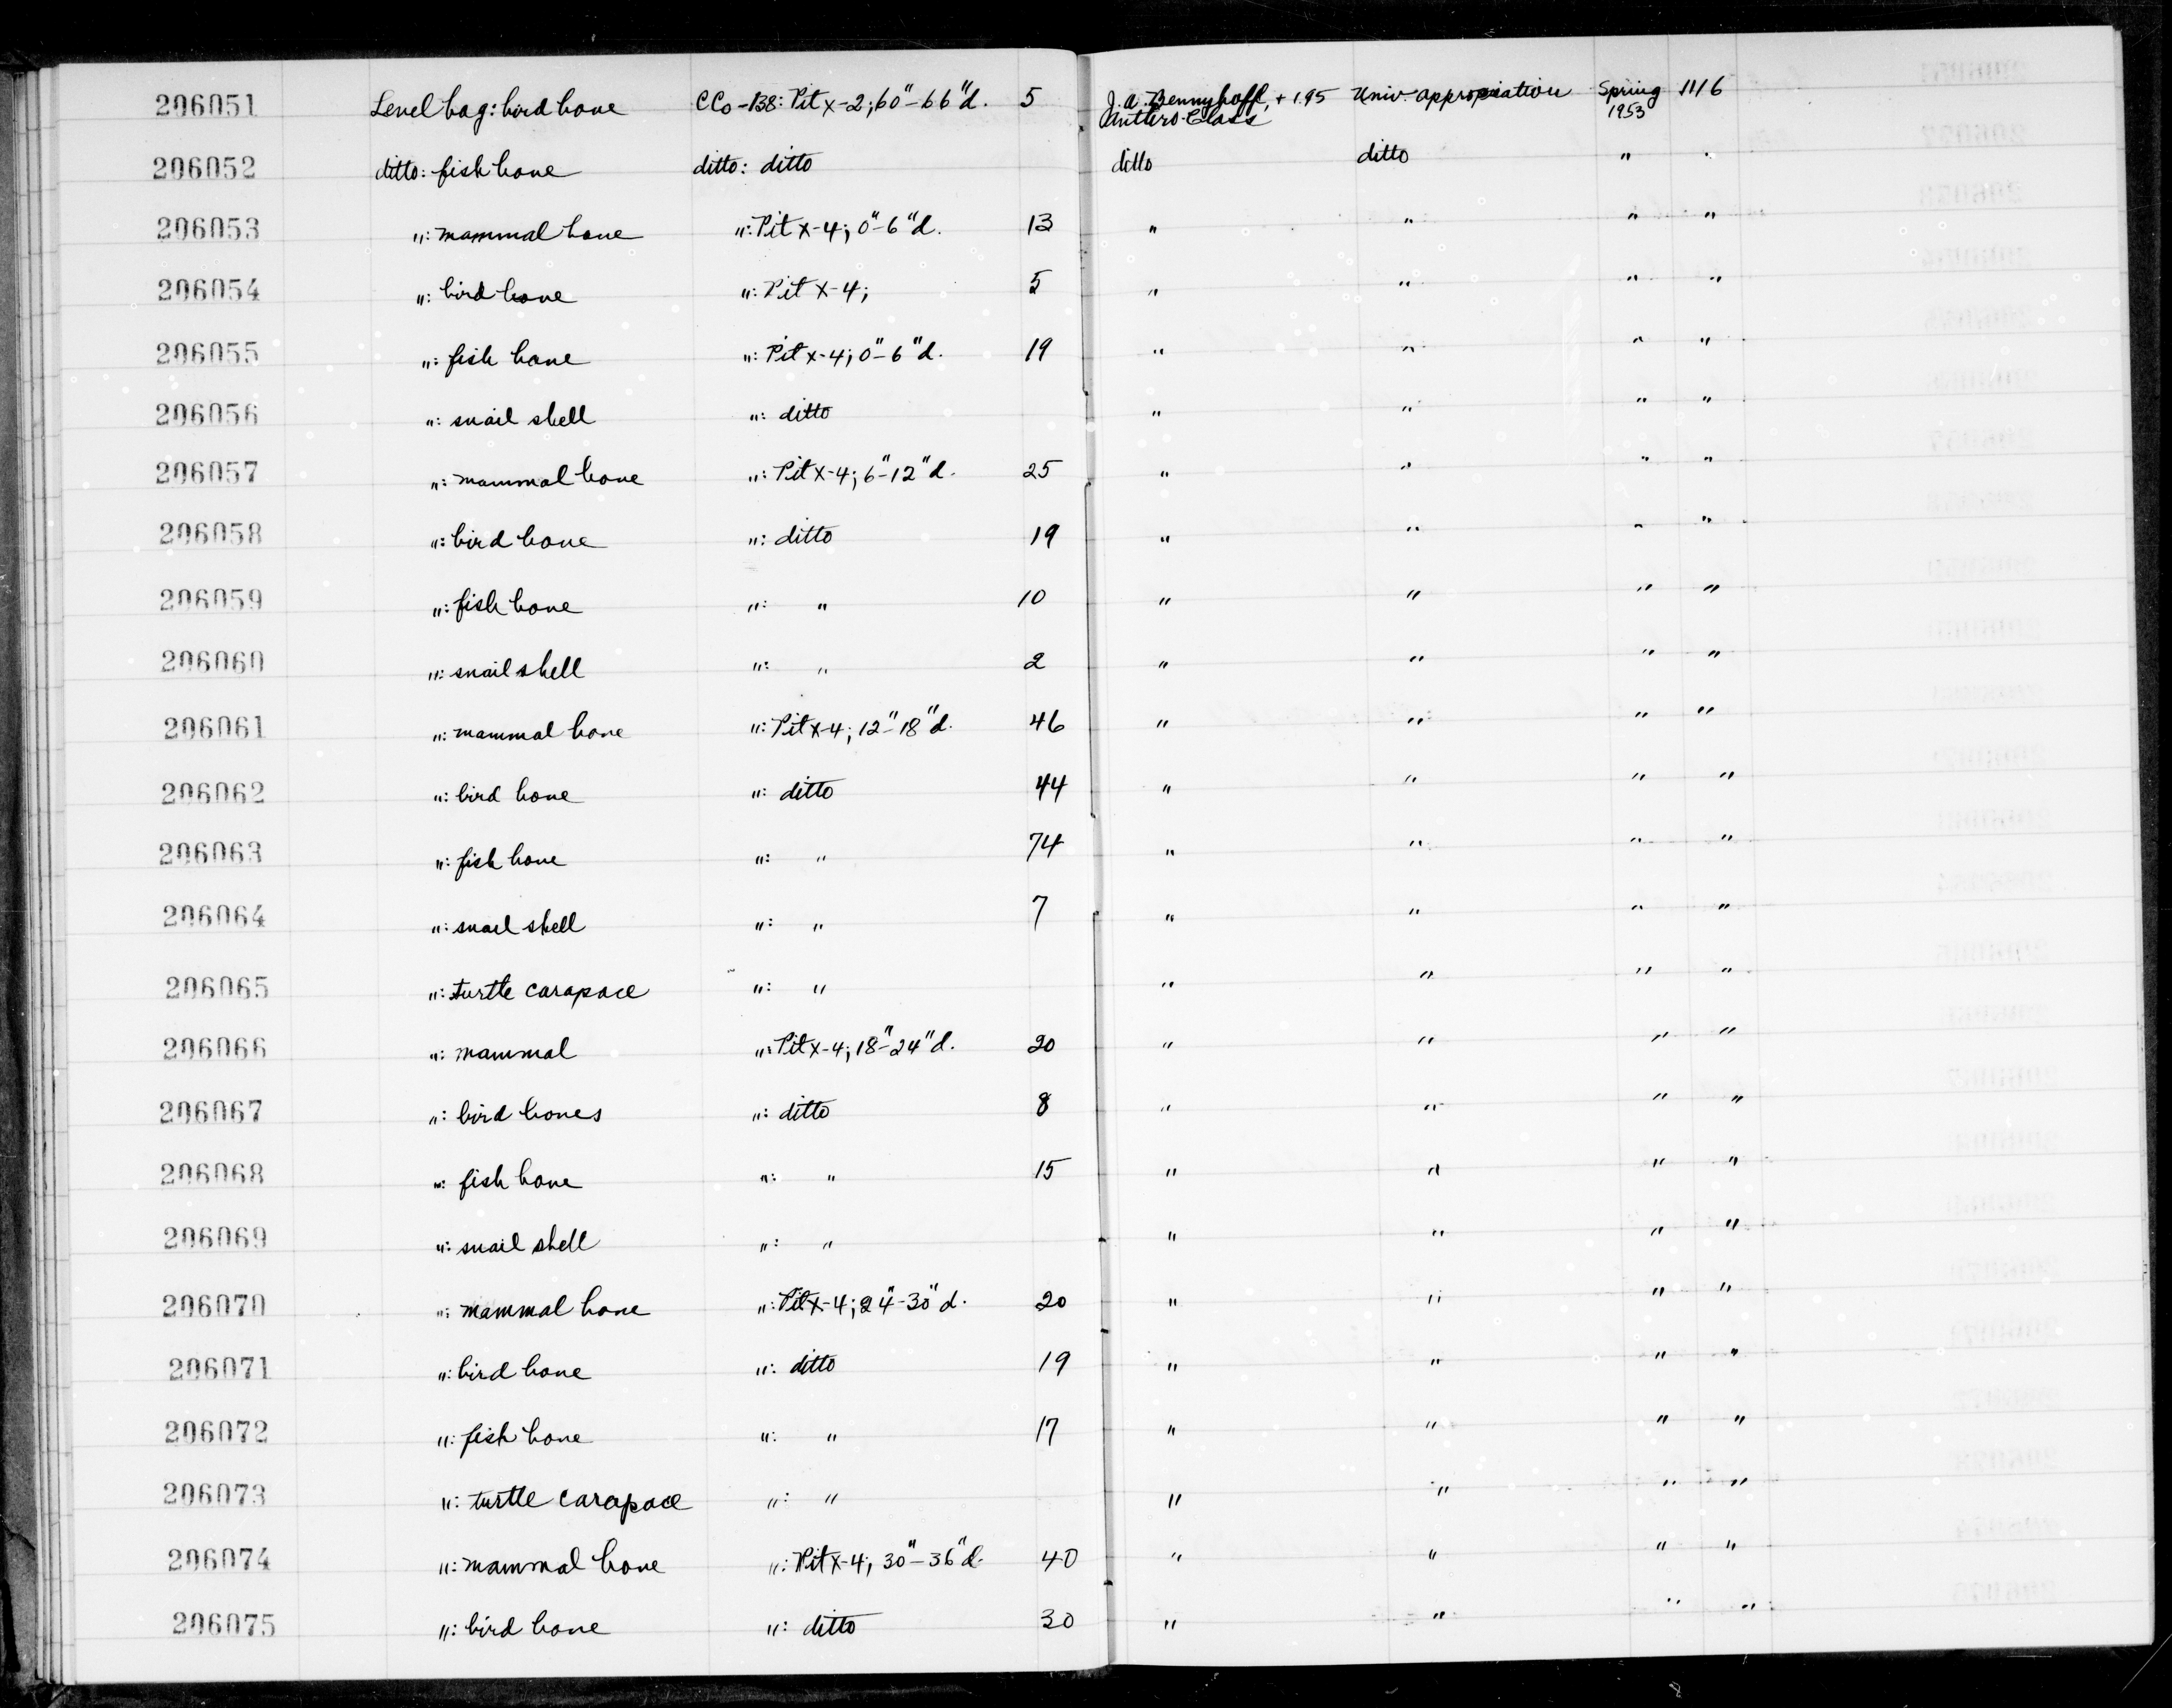 206051 Level bag: bird bone CCo-138: Pit x-2; 60"-66"d. 5 J.A. Bennyhoff, + 195 Univ. appropriation Spring 1116
Anthro. Class 1953
206052 ditto: fish bone ditto: ditto ditto ditto " "
206053 ": mammal bone ": Pit x-4; 0"-6"d. 13 " " " "
206054 ": bird bone ": Pit x-4; 5 " " " "
206055 ": fish bone ": Pit x-4; 0"-6"d. 19 " " " "
206056 ": snail shell ": ditto " " " "
206057 ": mammal bone ": Pit x-4; 6"-12"d. 25 " " " "
206058 ": bird bone ": ditto 19 " " " "
206059 ": fish bone ": " 10 " " " "
206060 ": snail shell ": " 2 " " " "
206061 ": mammal bone ": Pit x-4; 12"-18"d. 46 " " " "
206062 ": bird bone ": ditto 44 " " " "
206063 ": fish bone ": " 74 " " " "
206064 ": snail shell ": " 7 " " " "
206065 ": turtle carapace ": " " " " "
206066 ": mammal ": Pit x-4; 18"-24"d. 20 " " " "
206067 ": bird bones ": ditto 8 " " " "
206068 ": fish bone ": " 15 " " " "
206069 ": snail shell ": " " " " "
206070 ": mammal bone ": Pit x-4; 24"-30"d. 20 " " " "
206071 ": bird bone ": ditto 19 " " " "
206072 ": fish bone ": " 17 " " " "
206073 ": turtle carapace ": " " " " "
206074 ": mammal bone ": Pit x-4; 30"-36"d. 40 " " " "
206075 ": bird bone ": ditto 30 " " " "